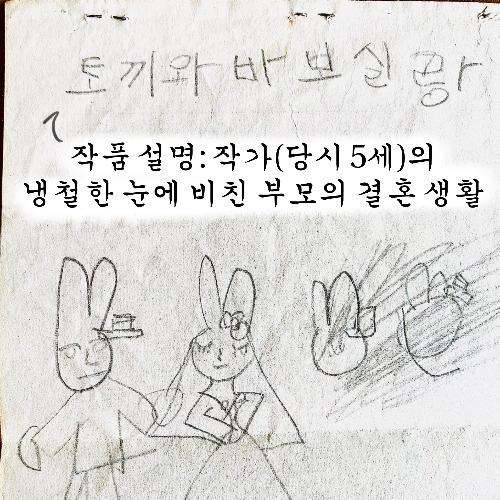 토끼와 바보실꽝
작품 설명: 작가(당시 5세)의
냉철한 눈에 비친 부모의 결혼 생활